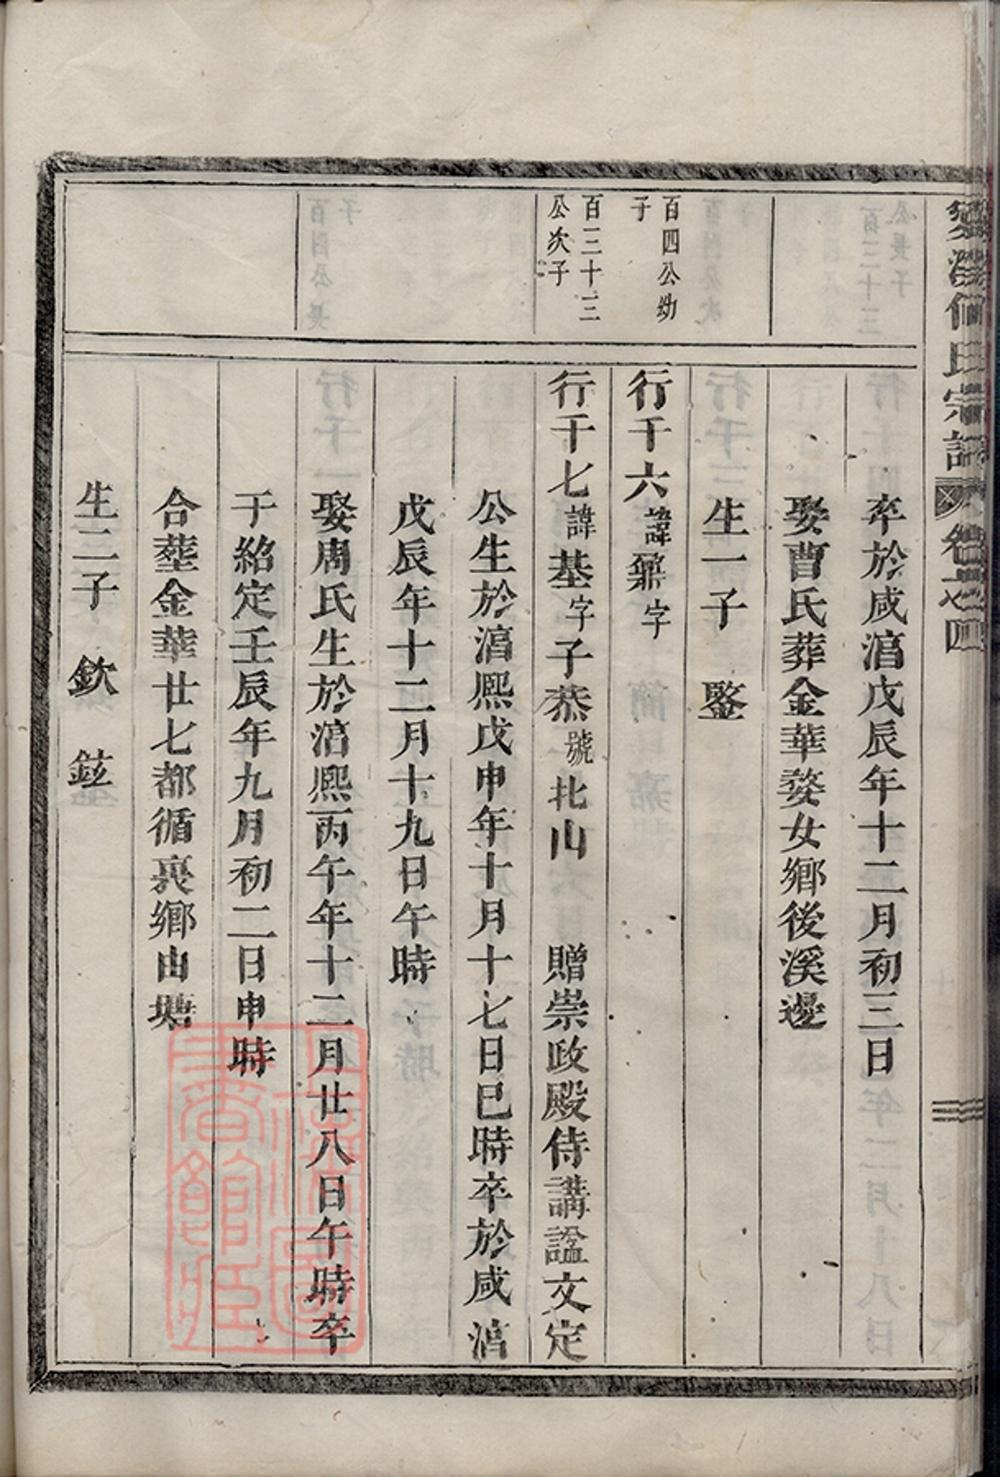 何氏宗譜
卒於咸淳戊辰年十二月初三日
娶曹氏葬金華婺女鄉後溪邊
生一子 鑒
百四公幼
子
行千六諱鼐字
百三十三
公次子
行千七諱基字子恭號北山 贈崇政殿侍講諡文定
公生於淳熙戊申年十月十七日巳時卒於咸淳
戊辰年十二月十九日午時
娶周氏生於淳熙丙午年十二月廿八日午時卒
于紹定壬辰年九月初二日申時
合塟金華廿七都循裏鄉由塘
生二子 欽 鉉